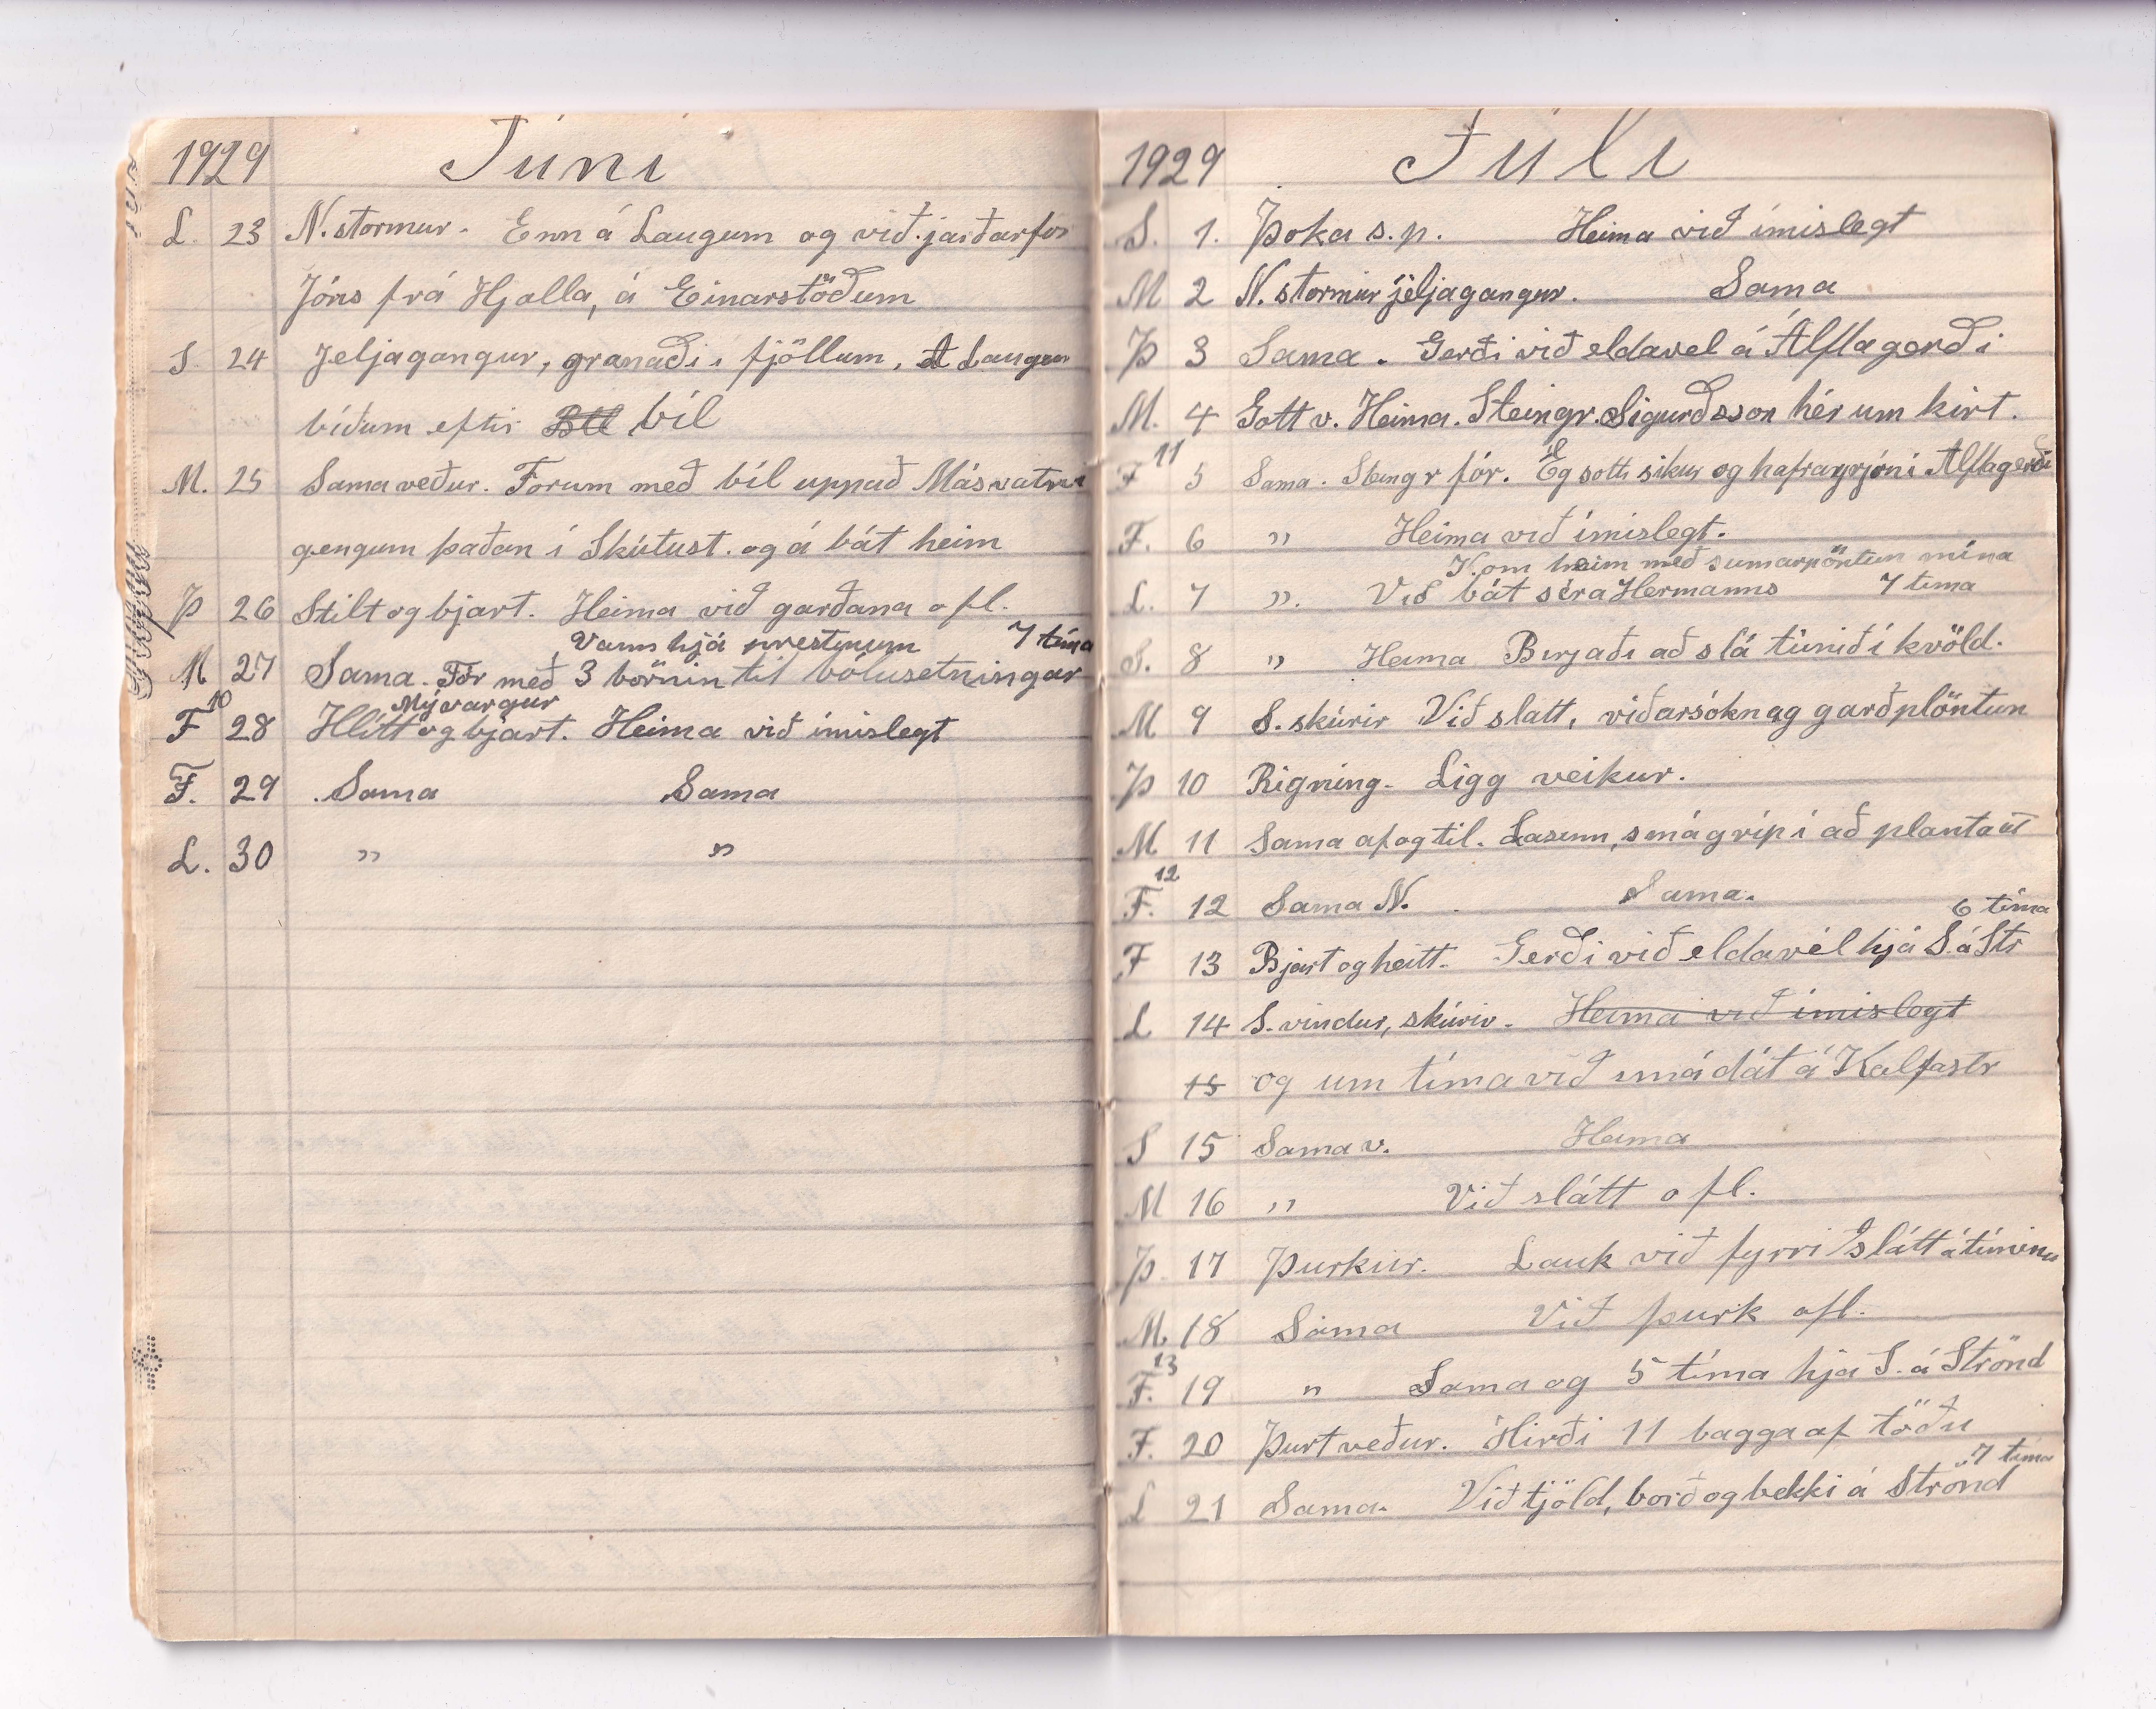 1929 Júní
L. 23 N. stormur. Enn á Laugum og við jarðarför
Jóns frá Hjalla, á Einarstöðum
S. 24 Jeljagangur, gránaði í fjöllum, Á Laugum
bíðum eftir bíl
M. 25 Sama veður. Forum með bíl uppað Másvatni
gengum þaðan í Skútust. og á bát heim
Þ 26 Stilt og bjart. Heima við garðana o fl.
Vann hjá prestinum 7 tíma
M 27 Sama. Fór með 3 börnin til bólusetningar
Mývargur
F 10 28 Hlítt og bjart. Heima við ímislegt
F. 29 Sama Sama
L. 30 " "
1929 Júlí
S. 1. Þoka s.p. Heima við ímislegt
M 2 N. stormur jeljagangur. Sama
Þ 3 Sama. Gerði við eldavel á Álftagerði
M. 4 Gott v. Heima. Steingr. Sigurðsson hér um kirt.
F 11 5 Sama. Steingr fór. Eg sótti sikur og hafragrjón í Álftagerði
F. 6 " Heima við ímislegt.
Kom heim með sumarpöntun mína
L. 7 ". Við bát séra Hermanns 7 tíma
S. 8 " Heima Birjaði að slá túnið í kvöld.
M 9 S. skúrir Við slatt, viðarsókn og garðplöntun
Þ 10 Rigning. Ligg veikur.
M 11 Sama af og til. Lasinn, smágríp í að planta út
F. 12 12 Sama N. Sama.
6 tíma
F 13 Bjart og heitt. Gerði við eldavél hjá S. á Str
L 14 S. vindur, skúrir. Heima við ímislegt
15 og um tíma við smádót á Kalfastr
S 15 Sama v. Heima
M 16 " Við slátt o fl.
Þ. 17 Þurkur. Lauk við fyrri slátt á túninu
M. 18 Sama Við þurk ofl.
F. 13 19 " Sama og 5 tíma hja S. á Strönd
F. 20 Þurt veður. Hirði 11 bagga af töðu
7 tíma
L 21 Sama. Við tjöld, borð og bekki á Strönd